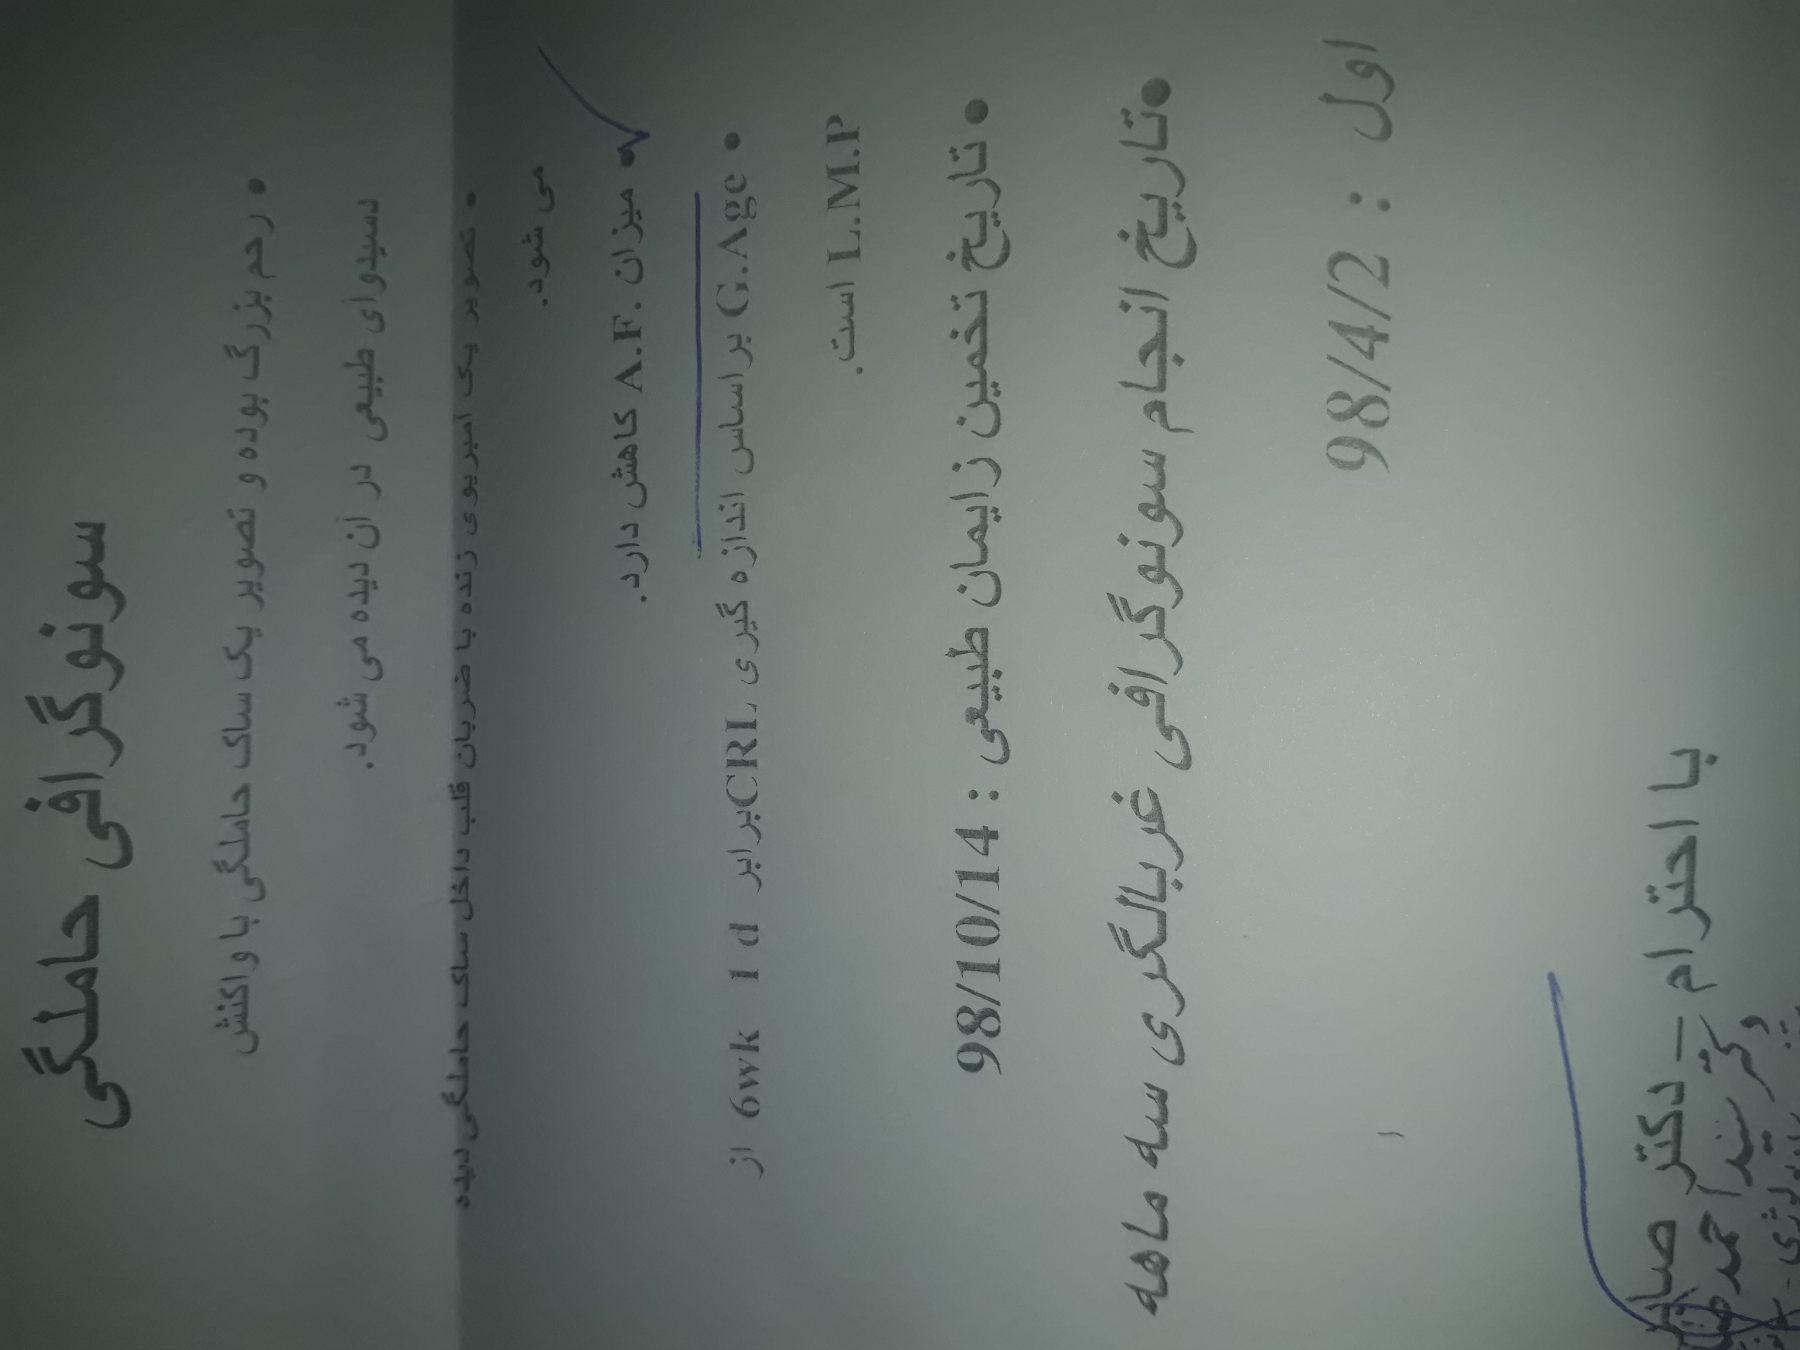 سونوگرافی حاملگی
• رحم بزرگ بوده و تصویر یک ساک حاملگی با واکنش
دسیدوای طبیعی در ان دیده می شود.
• تصویر یک امبریوی زنده با ضربان قلب داخل ساک حاملگی دیده
می شود.
• میزان A.F. کاهش دارد.
• G.Age براساس اندازه گیری CRL برابر 6wk 1 d از
L.M.P است.
• تاریخ تخمین زایمان طبیعی : 98/10/14
• تاریخ انجام سونوگرافی غربالگری سه ماهه
اول : 98/4/2
با احترام – دکتر
دکتر سید احمد